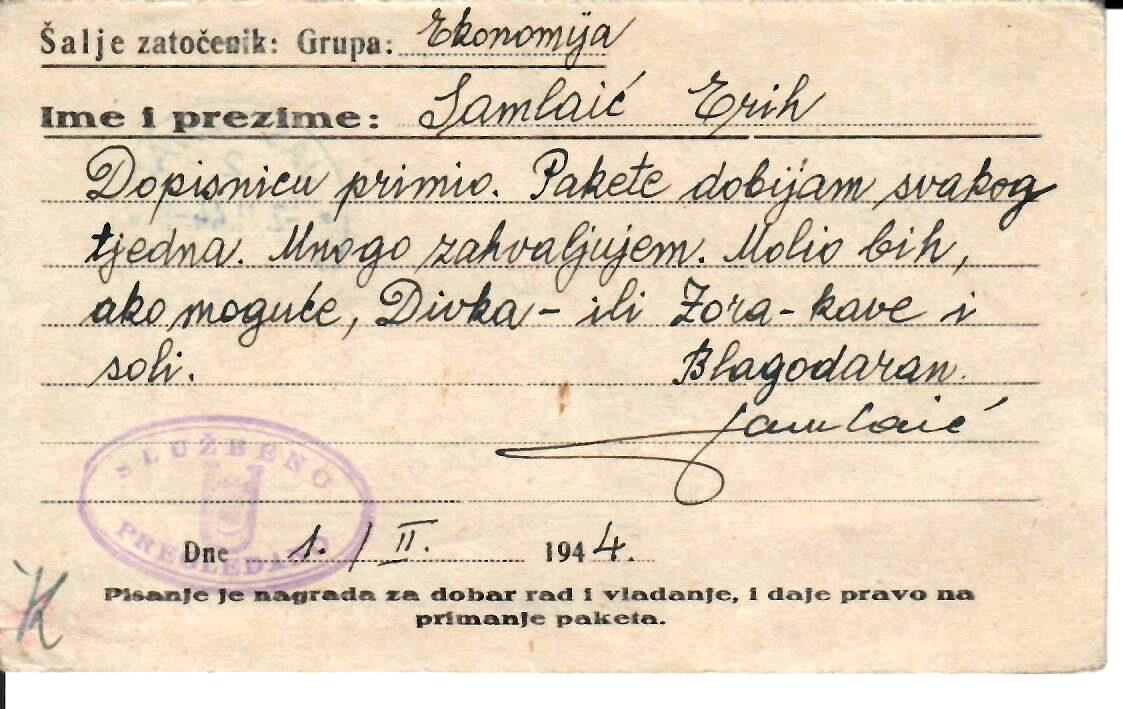 Šalje zatočenik: Grupa: Ekonomija
Ime i prezime: Samlaić Erih
Dopisnicu primio. Pakete dobijam svakog
tjedna. Mnogo zahvaljujem. Molio bih,
ako moguće, Divka- ili Zora-kave i
soli. Blagodaran
Samlaić
SLUŽBENO
PREGLEDANO
Dne 1./II. 1944.
K
Pisanje je nagrada za dobar rad i vladanje, i daje pravo na
primanje paketa.